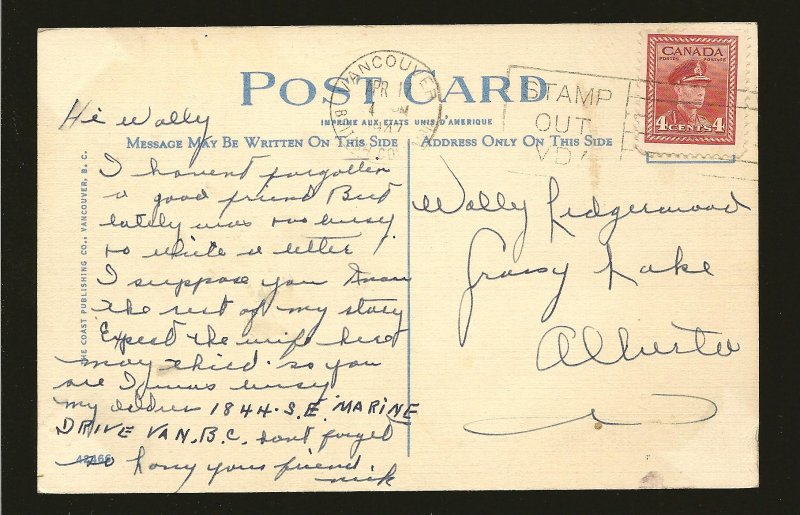 POST CARD
IMPRIME AUX ETATS UNIS D'AMERIQUE
MESSAGE MAY BE WRITTEN ON THIS SIDE
ADDRESS ONLY ON THIS SIDE
VANCOUVER
APR 1
4 PM
1947
STAMP
OUT
VD
CANADA
POSTES POSTAGE
4 CENTS 4
THE COAST PUBLISHING CO., VANCOUVER, B. C.
Hi Wally
I havent forgotten
a good friend But
lately was too busy
to write a letter!
I suppose you know
the rest of my story
Expect the wife here
may third. so you
see I was busy
my address 1844. S.E. MARINE
DRIVE VAN. B.C. dont forget
so long your friend
nick
Wally Ledgerwood
Grassy Lake
Alberta